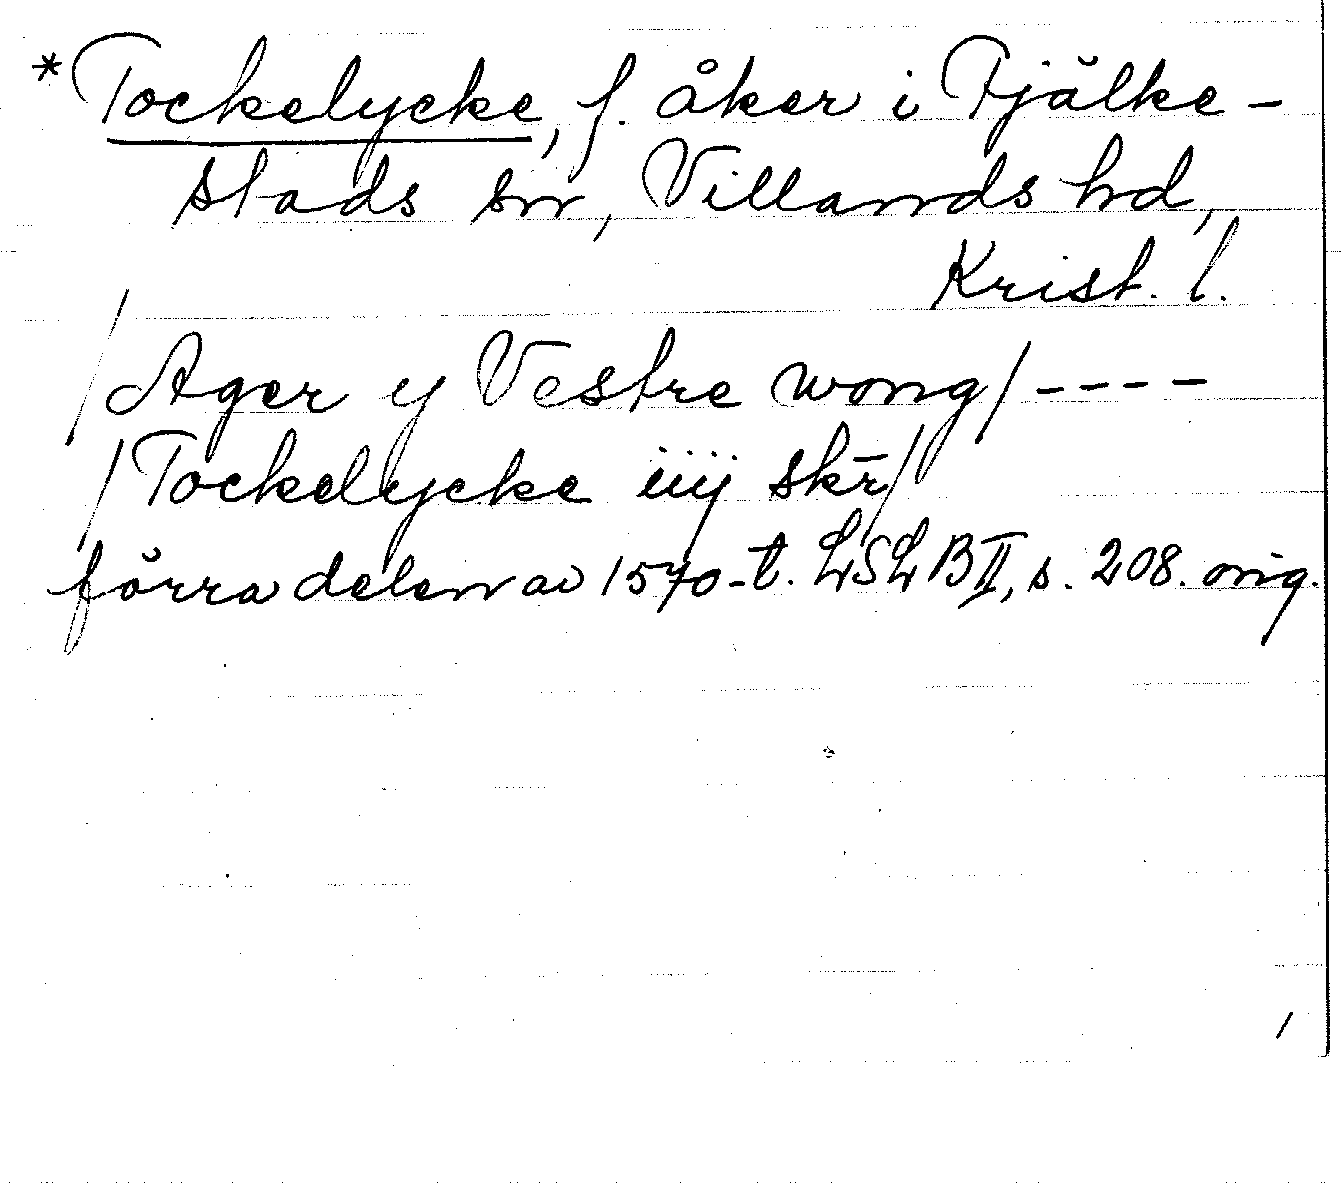 *Tockelycke, f. åker i Fjälke-
stads sn, Villands hd,
Krist. l.
/Ager y Vestre wong/ ----
/Tockelycke iiij skr̄/
förra delen av 1570-t. LSLB II, s. 208. orig.